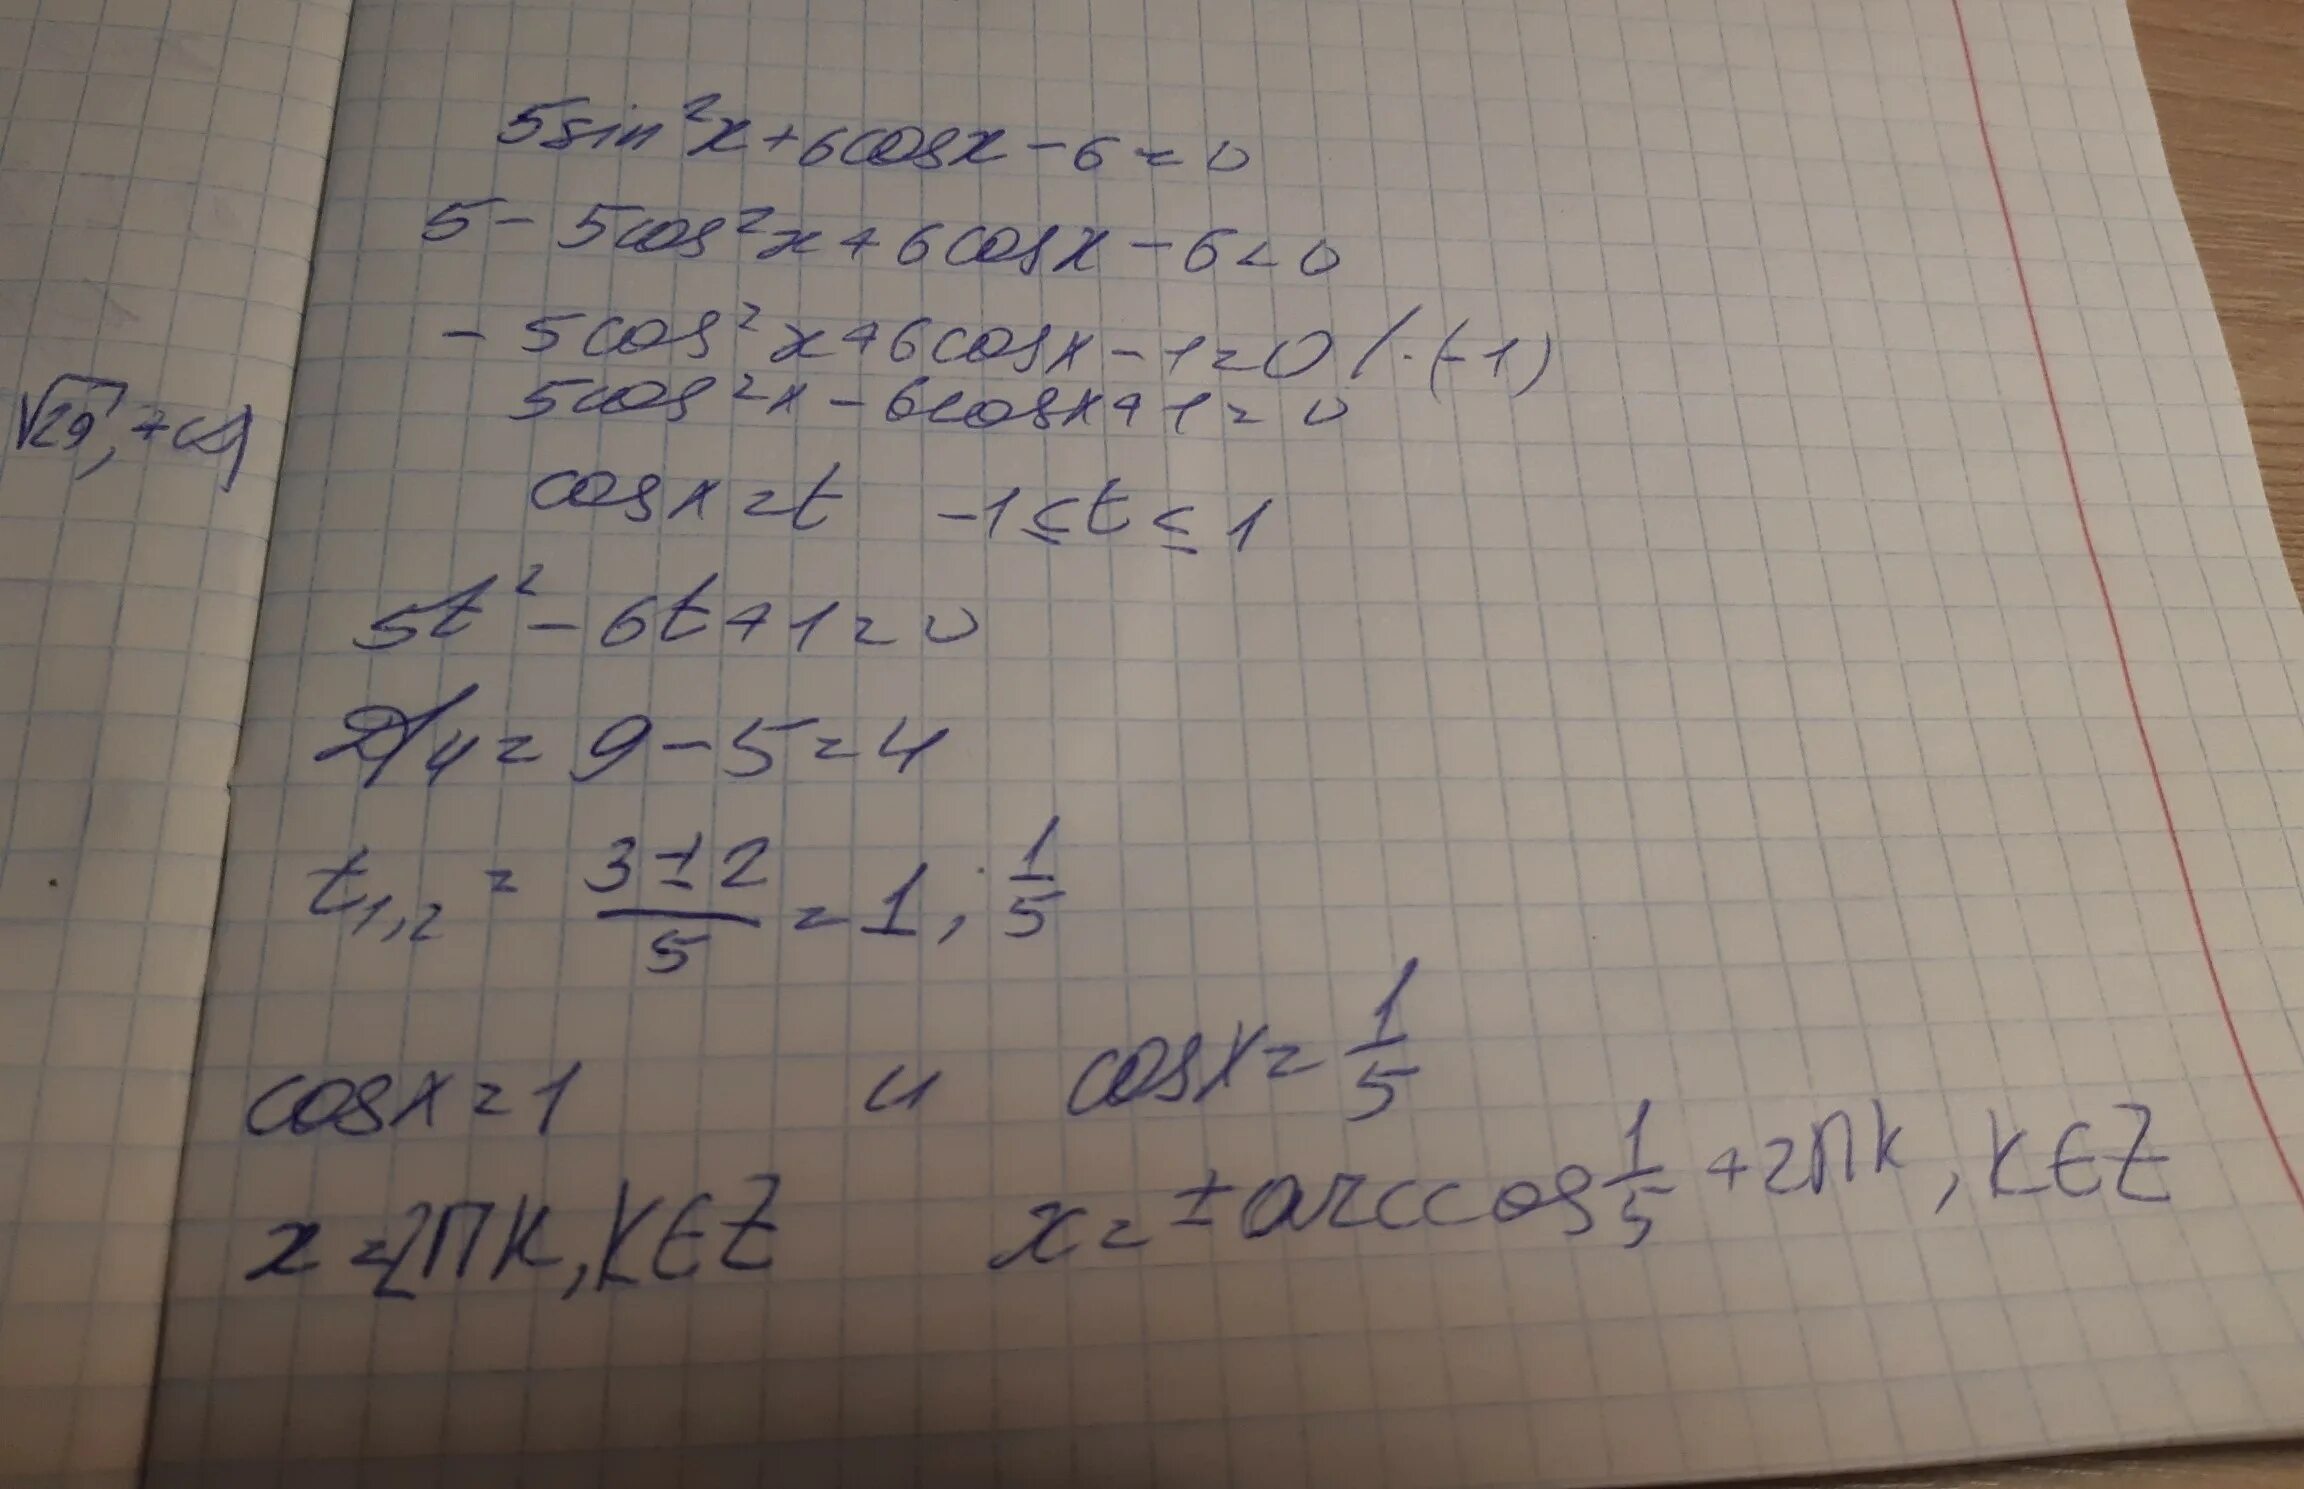 5sin²x+6cosx-6=0
5-5cos²x+6cosx-6=0
-5cos²x+6cosx-1=0 /·(-1)
5cos²x-6cosx+1=0
√29, +∞)
cosx=t -1≤t≤1
5t²-6t+1=0
D/4=9-5=4
t1,2 = (3±2)/5 = 1; 1/5
cosx=1 и cosx=1/5
x=2Пk, k∈Z x=±arccos 1/5 +2Пk, k∈Z